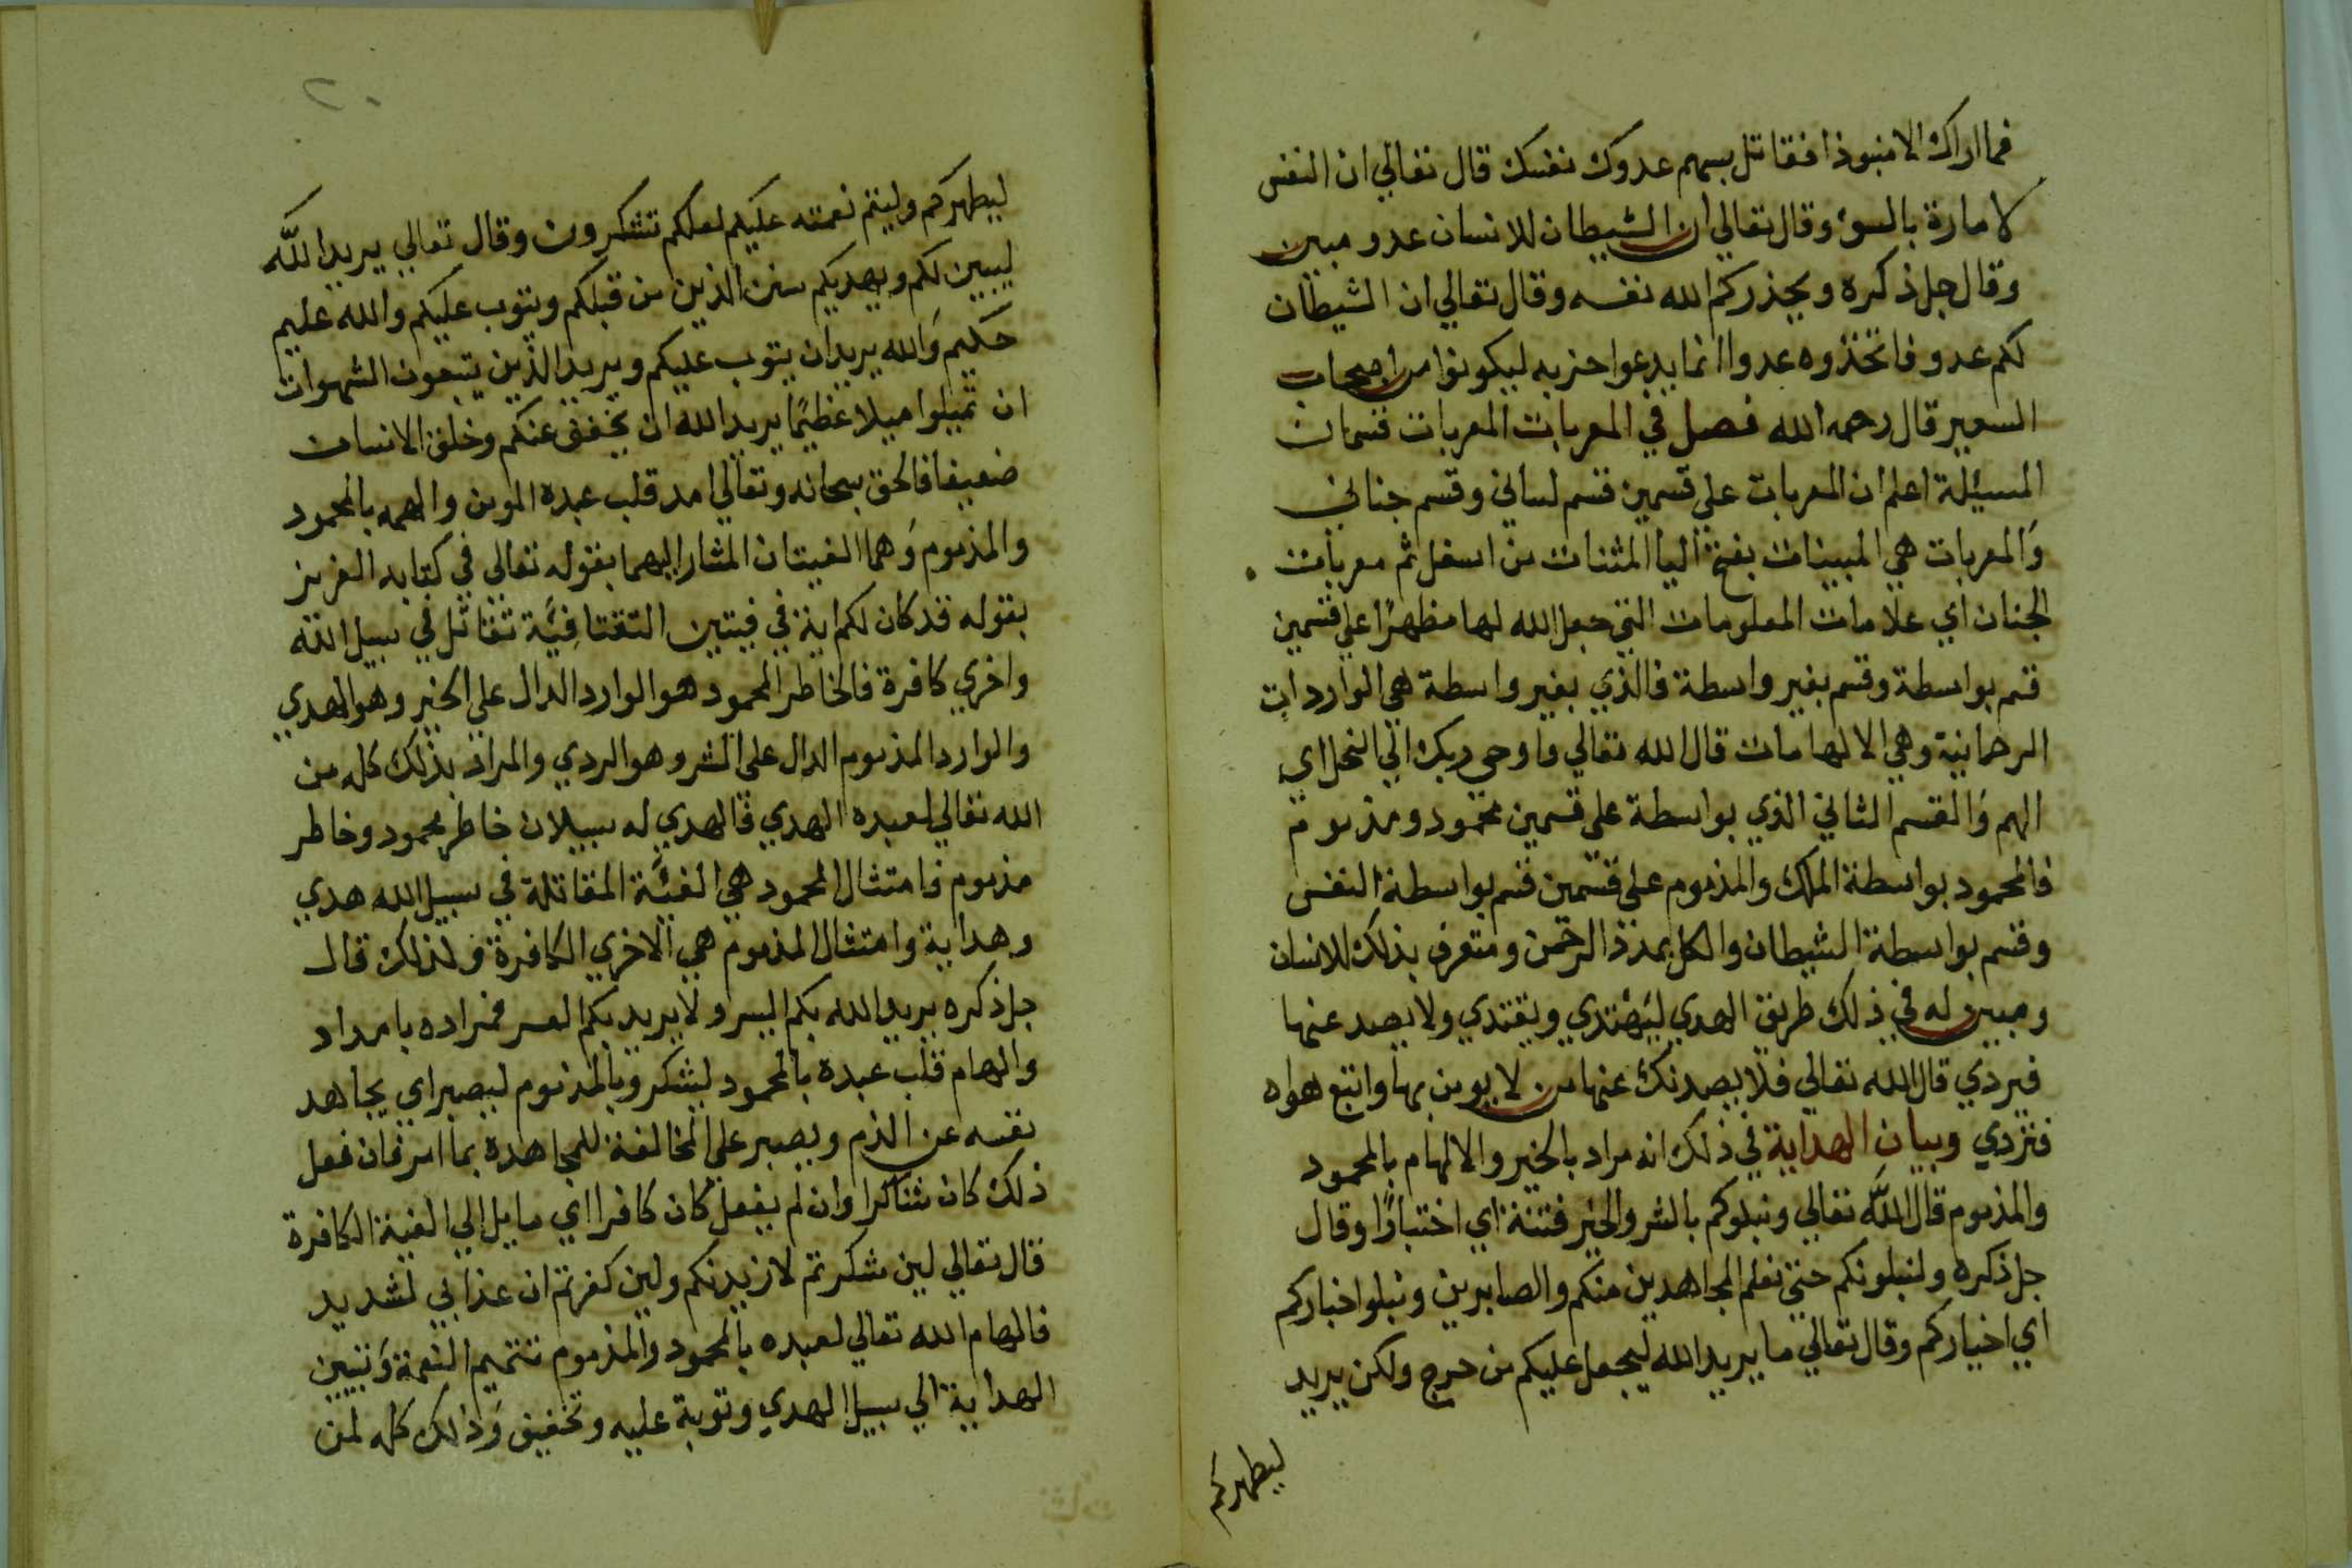 فما اراك الا منبوذا فقاتل بسهم عدوك نفسك قال تعالي ان النفس
لامارة بالسوء وقال تعالي ان الشيطان للانسان عدو مبين
وقال جل ذكره ويحذركم الله نفسه وقال تعالي ان الشيطان
لكم عدو فاتخذوه عدوا انما يدعوا حزبه ليكونوا من اصحاب
السعير قال رحمه الله فصل في المعربات المعربات قسمان
المسيئلة اعلم ان المعربات علي قسمين قسم لساني وقسم جناني
والمعربات هي المبينات بفتح اليا المثنات من اسفل ثم معربات
الجنان اي علامات المعلومات التي جعل الله لها مظهرًا علي قسمين
قسم بواسطة وقسم بغير واسطة فالذي بغير واسطة هي الواردات
الرحمانية وهي الالهامات قال الله تعالي واوحي ربك الي النحل اي
الهم والقسم الثاني الذي بواسطة علي قسمين محمود ومذموم
فالمحمود بواسطة الملك والمذموم علي قسمين قسم بواسطة النفس
وقسم بواسطة الشيطان والكل بمدد الرحمن ومتعرف بذلك للانسان
ومبين له في ذلك طريق الهدي ليهتدي ويقتدي ولا يصد عنها
فيردي قال الله تعالي فلا يصدنك عنها من لا يومن بها واتبع هواه
فتردي وبيان الهداية في ذلك انه مراد بالخير والالهام بالمحمود
والمذموم قال الله تعالي ونبلوكم بالشر والخير فتنة اي اختبارًا وقال
جل ذكره ولنبلونكم حتي نعلم المجاهدين منكم والصابرين ونبلوا اخباركم
اي اخياركم وقال تعالي ما يريد الله ليجعل عليكم من حرج ولكن يريد
ليطهركم
٢٠
ليطهركم وليتم نعمته عليكم لعلكم تشكرون وقال تعالي يريد الله
ليبين لكم ويهديكم سنن الذين من قبلكم ويتوب عليكم والله عليم
حكيم والله يريد ان يتوب عليكم ويريد الذين يتبعون الشهوات
ان تميلوا ميلا عظيمًا يريد الله ان يخفف عنكم وخلق الانسان
ضعيفا فالحق سبحانه وتعالي امد قلب عبده المومن والهمه بالمحمود
والمذموم وهما الفيتان المشار اليهما بقوله تعالي في كتابه العزيز
بقوله قد كان لكم اية في فيتين التقتا فِيَّة تقاتل في سبيل الله
واخري كافرة فالخاطر المحمود هو الوارد الدال علي الخير وهو الهدي
والوارد المذموم الدال علي الشر وهو الردي والمراد بذلك كله من
الله تعالي لعبده الهدي فالهدي له سبيلان خاطر محمود وخاطر
مذموم فامتثال المحمود هي الفيَّة المقاتلة في سبيل الله هدي
وهداية وامتثال المذموم هي الاخري الكافرة ولذلك قال
جل ذكره يريد الله بكم اليسر ولا يريد بكم العسر فمراده بامداد
والهام قلب عبده بالمحمود ليشكر وبالمذموم ليصبر اي يجاهد
نفسه عن الذم ويصبر علي المخالفة للمجاهدة بما امر فان فعل
ذلك كان شاكرا وان لم يفعل كان كافرا اي مايل الي الفية الكافرة
قال تعالي لين شكرتم لازيدنكم ولين كفرتم ان عذابي لشديد
فالهام الله تعالي لعبده بالمحمود والمذموم تتميم النعمة وتبيين
الهداية الي سبيل الهدي وتوبة عليه وتخفيف وذلك كله لمن